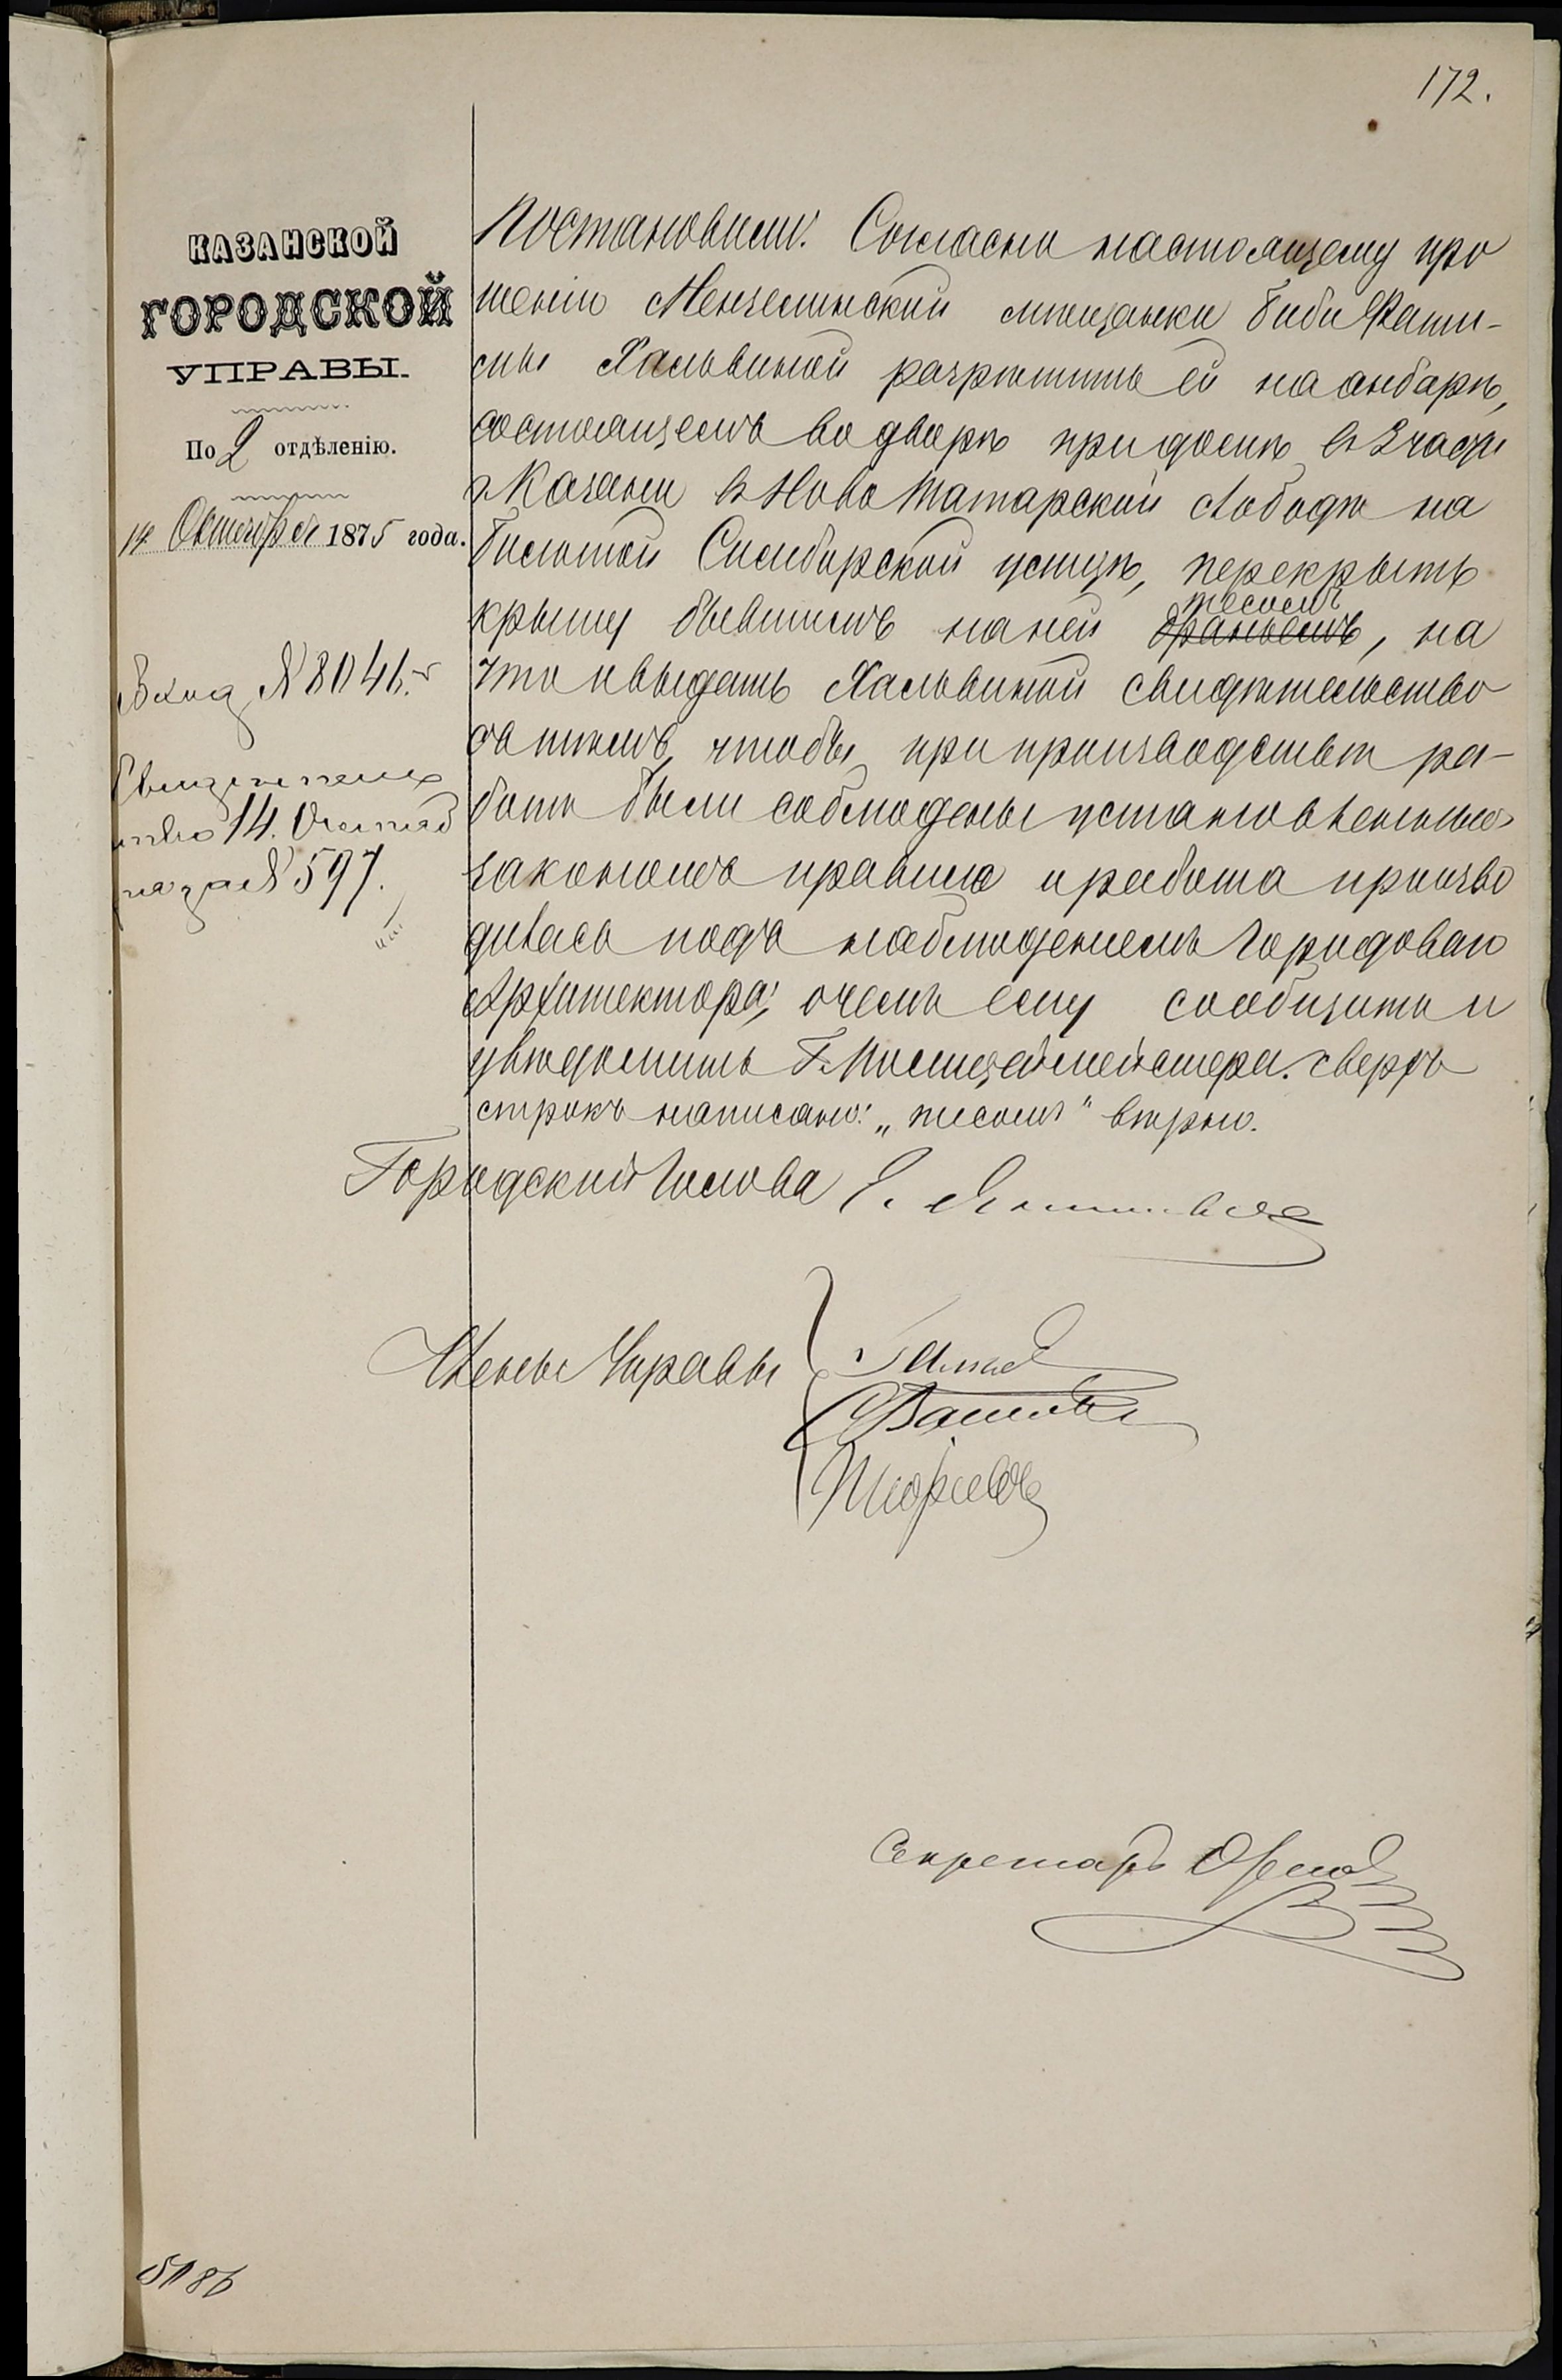 172.
КАЗАНСКОЙ
ГОРОДСКОЙ
УПРАВЫ.
По 2 отдѣленію.
14 Октября 1875 года.
Вход. № 8041.
14.
за № 597.
Постановили: Согласно настоящему про
шенію Мензелинской мѣщанки Биби Фати-
мы Хальвиной разрѣшить ей на анбарѣ,
состоящемъ во дворѣ при домѣ въ 3 части
г. Казани въ Ново Татарской слободѣ на
большой Симбирской улицѣ, перекрыть
тесомъ
крышу бывшимъ на ней драньемъ, на
что и выдать Хальвиной свидѣтельство
съ тѣмъ, чтобы при производствѣ ра-
ботъ были соблюдены установленныя
закономъ правила и работа произво
дилась подъ наблюденіемъ Городоваго
Архитектора; о чемъ ему сообщить и
увѣдомить Г. Полицеймейстера. Сверхъ
строкъ написано: „тесомъ" вѣрно.
Городской Голова
Члены Управы
Секретарь
5186